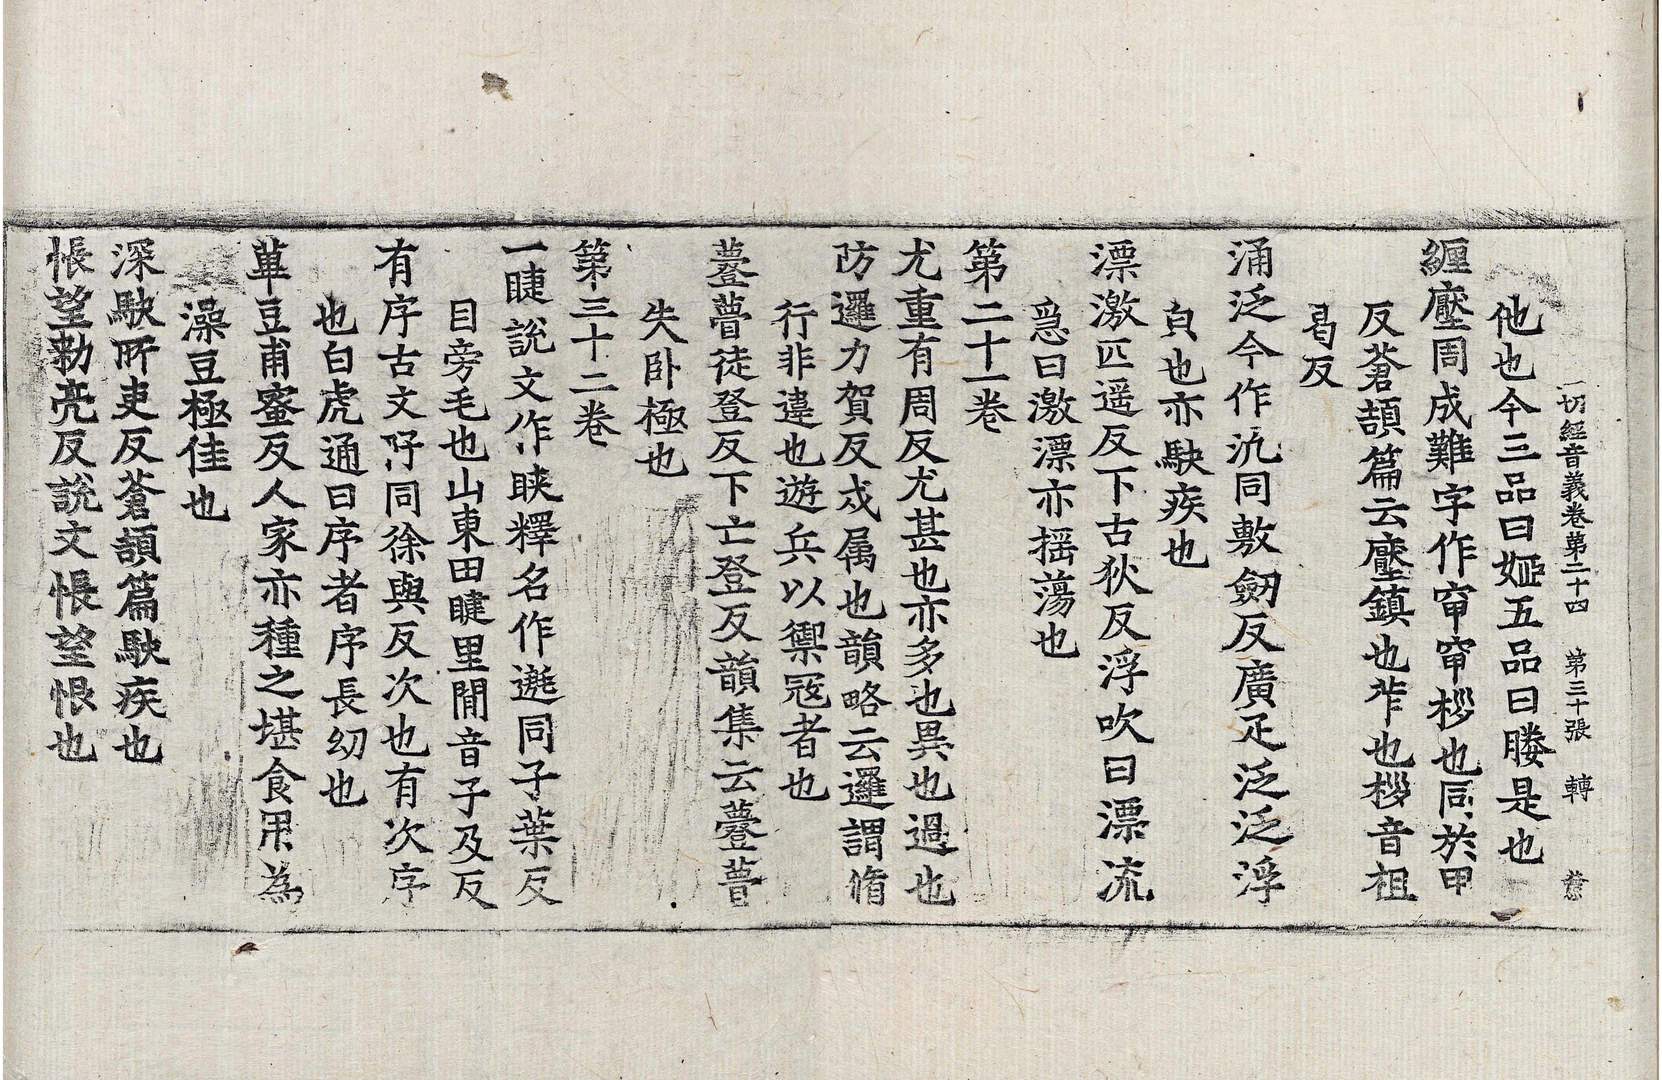 一切經音義卷第二十四 第三十張 轉
他也今三品曰婭五品曰媵是也
纏壓周成難字作窄窄桚也同於甲
反蒼頡篇云壓鎮也笮也桚音祖
曷反
涌泛今作汎同敷劒反廣疋泛泛浮
皃也亦駃疾也
漂激匹遥反下古狄反浮吹曰漂流
急曰激漂亦摇蕩也
第二十一卷
尤重有周反尤甚也亦多也異也過也
防邏力賀反戍属也韻略云邏謂脩
行非違也遊兵以禦冦者也
薹瞢徒登反下亡登反韻集云薹瞢
失卧極也
第三十二卷
一睫說文作䀹釋名作𨗉同子葉反
目旁毛也山東田睫里閒音子及反
有序古文㕂同徐與反次也有次序
也白虎通曰序者序長㓜也
萆豆甫蜜反人家亦種之堪食用為
澡豆極佳也
深駃所吏反蒼頡篇駃疾也
悵望勅亮反說文悵望恨也